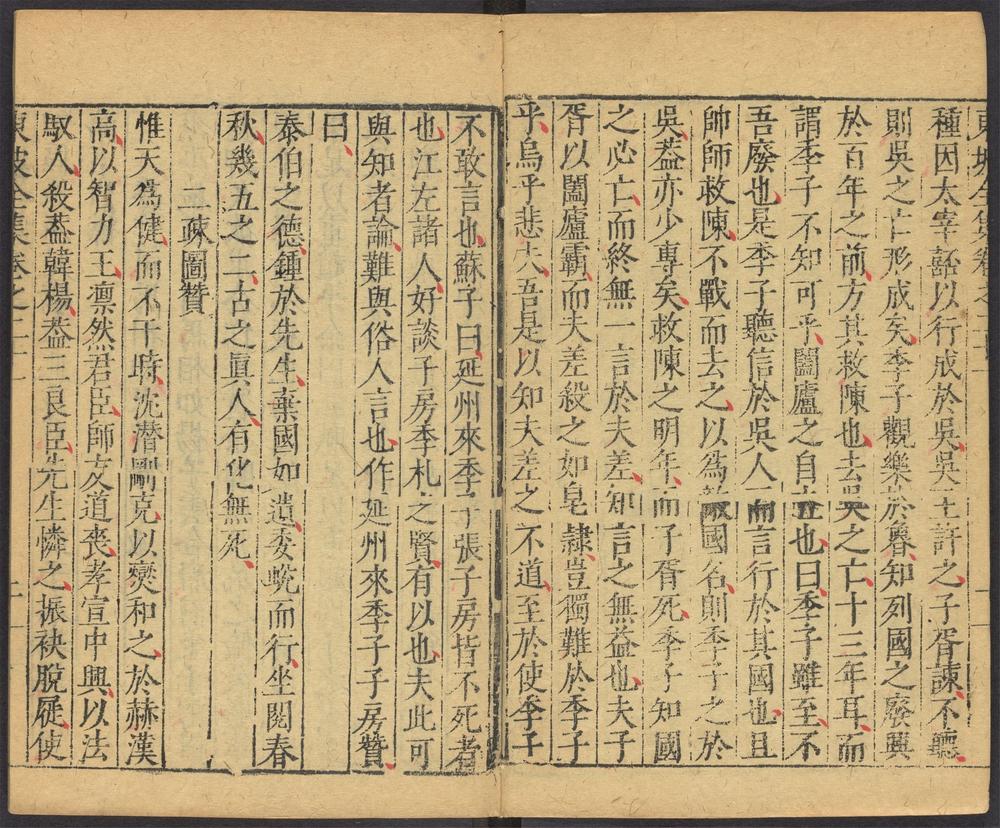 東坡全集卷之二十一
種因太宰嚭以行成於吳吳王許之子胥諫不聽
則吳之亡形成矣季子觀樂於魯知列國之廢興
於百年之前方其救陳也去吳之亡十三年耳而
謂季子不知可乎闔廬之自立也曰季子雖至不
吾廢也是季子聽信於吳人而言行於其國也且
帥師救陳不戰而去之以爲敵國名則季子之於
吳葢亦少專矣救陳之明年而子胥死季子知國
之必亡而終無一言於夫差知言之無益也夫子
胥以闔廬霸而夫差殺之如皂隸豈獨難於季子
乎烏乎悲夫吾是以知夫差之不道至於使季子
不敢言也蘇子曰延州來季子張子房皆不死者
也江左諸人好談子房季札之賢有以也夫此可
與知者論難與俗人言也作延州來季子子房贊
曰
泰伯之德鍾於先生棄國如遺委蛻而行坐閱春
秋幾五之二古之眞人有化無死
二疎圖贊
惟天爲健而不干時沈潛剛克以爕和之於赫漢
高以智力王凛然君臣師友道喪孝宣中興以法
馭人殺葢韓楊葢三良臣先生憐之振袂脫屣使
東坡全集卷之二十一